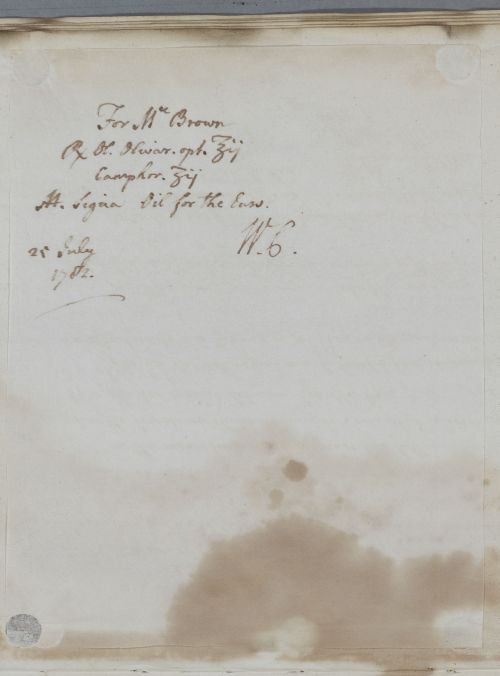 For Mr Brown
℞ Ol. Olivar. opt. ʒij
Camphor. ʒij
M. Signa Oil for the Ears.
W. C.
25 July
1782.